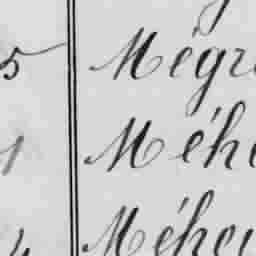 5 Mégr
1 Méh
4 Méhe